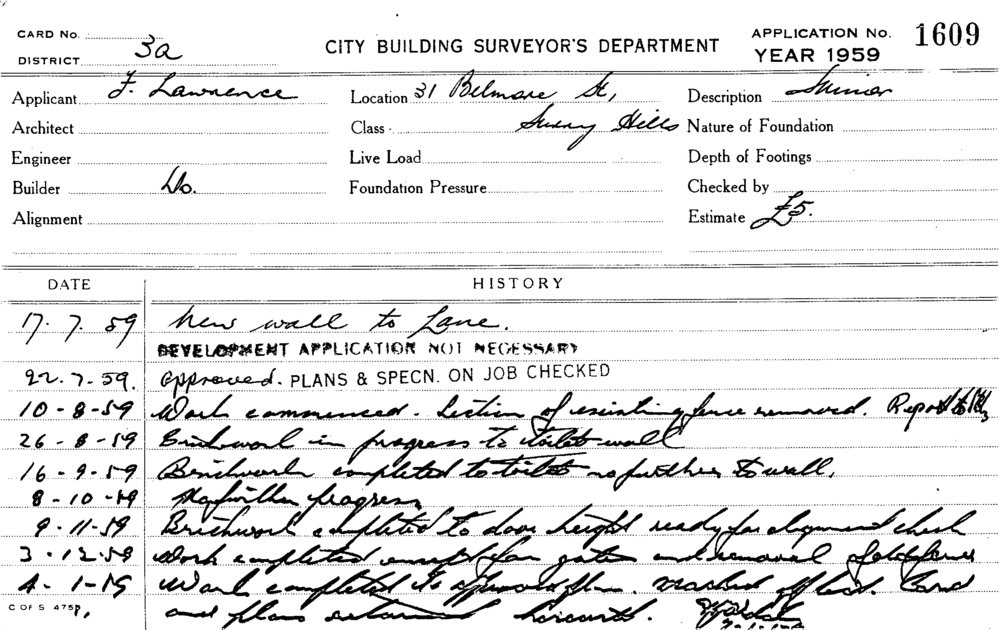 CARD No.
DISTRICT 3a
CITY BUILDING SURVEYOR'S DEPARTMENT
APPLICATION No. 1609
YEAR 1959
Applicant F. Lawrence Location 31 Belmore St, Description Minor
Architect Class Surry Hills Nature of Foundation
Engineer Live Load Depth of Footings
Builder Do. Foundation Pressure Checked by
Alignment Estimate £5.
DATE HISTORY
17. 7. 59 New wall to Lane.
DEVELOPMENT APPLICATION NOT NECESSARY
22. 7. 59. Approved. PLANS & SPECN. ON JOB CHECKED
10 - 8 - 59 Work commenced. Section of existing fence removed. Report to
26 - 8 - 59 Brickwork in progress to toilet wall
16 - 9 - 59 Brickwork completed to toilet no further to wall.
8 - 10 - 59 No further progress
9 - 11 - 59 Brickwork completed to door height ready for alignment check
3 - 12 - 59 Work completed except for gates and removal of old fence
4 - 1 - 59 Work completed to approved plan. Marked off list. Card
C OF S 475 and plans returned herewith.